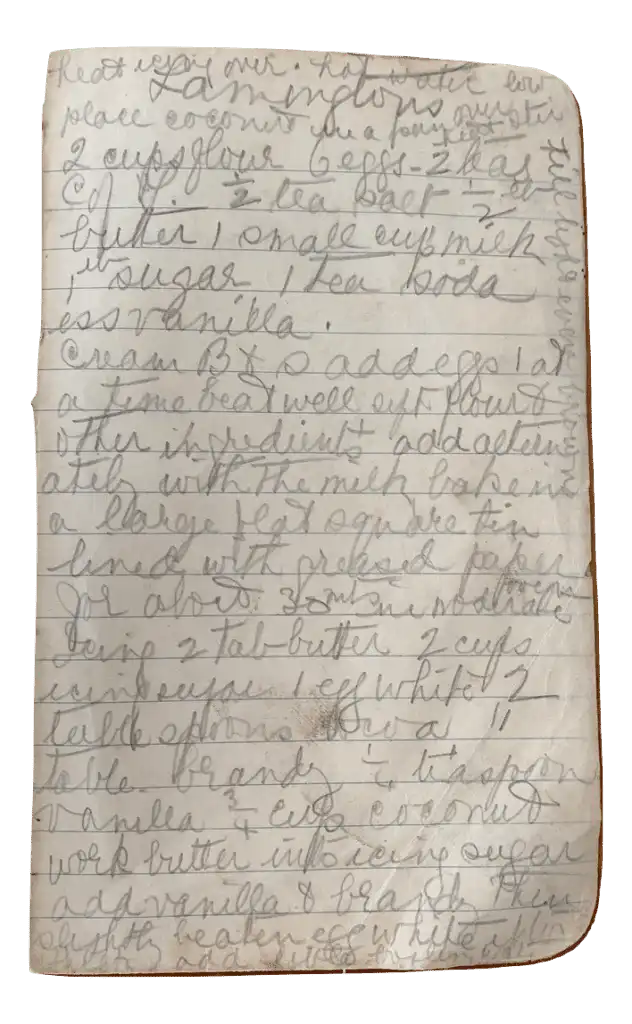 heat icing over hot water low
Lamingtons
place coconut in a
2 cups flour 6 eggs - 2 teas
C of T. ½ tea salt ½ lb
butter 1 small cup milk
1 lb sugar 1 tea soda
ess vanilla.
Cream B & S add eggs 1 at
a time beat well syft flour &
other ingredients add altern
ately with the milk bake in
a large flat square tin
lined with greased paper
for about 30 mts in moderate oven
Icing 2 tab butter 2 cups
icing sugar 1 egg white 2
table spoons cocoa 1
table brandy ¼ teaspoon
vanilla ¾ cups coconut
work butter into icing sugar
add vanilla & brandy then
slightly beaten egg white
add